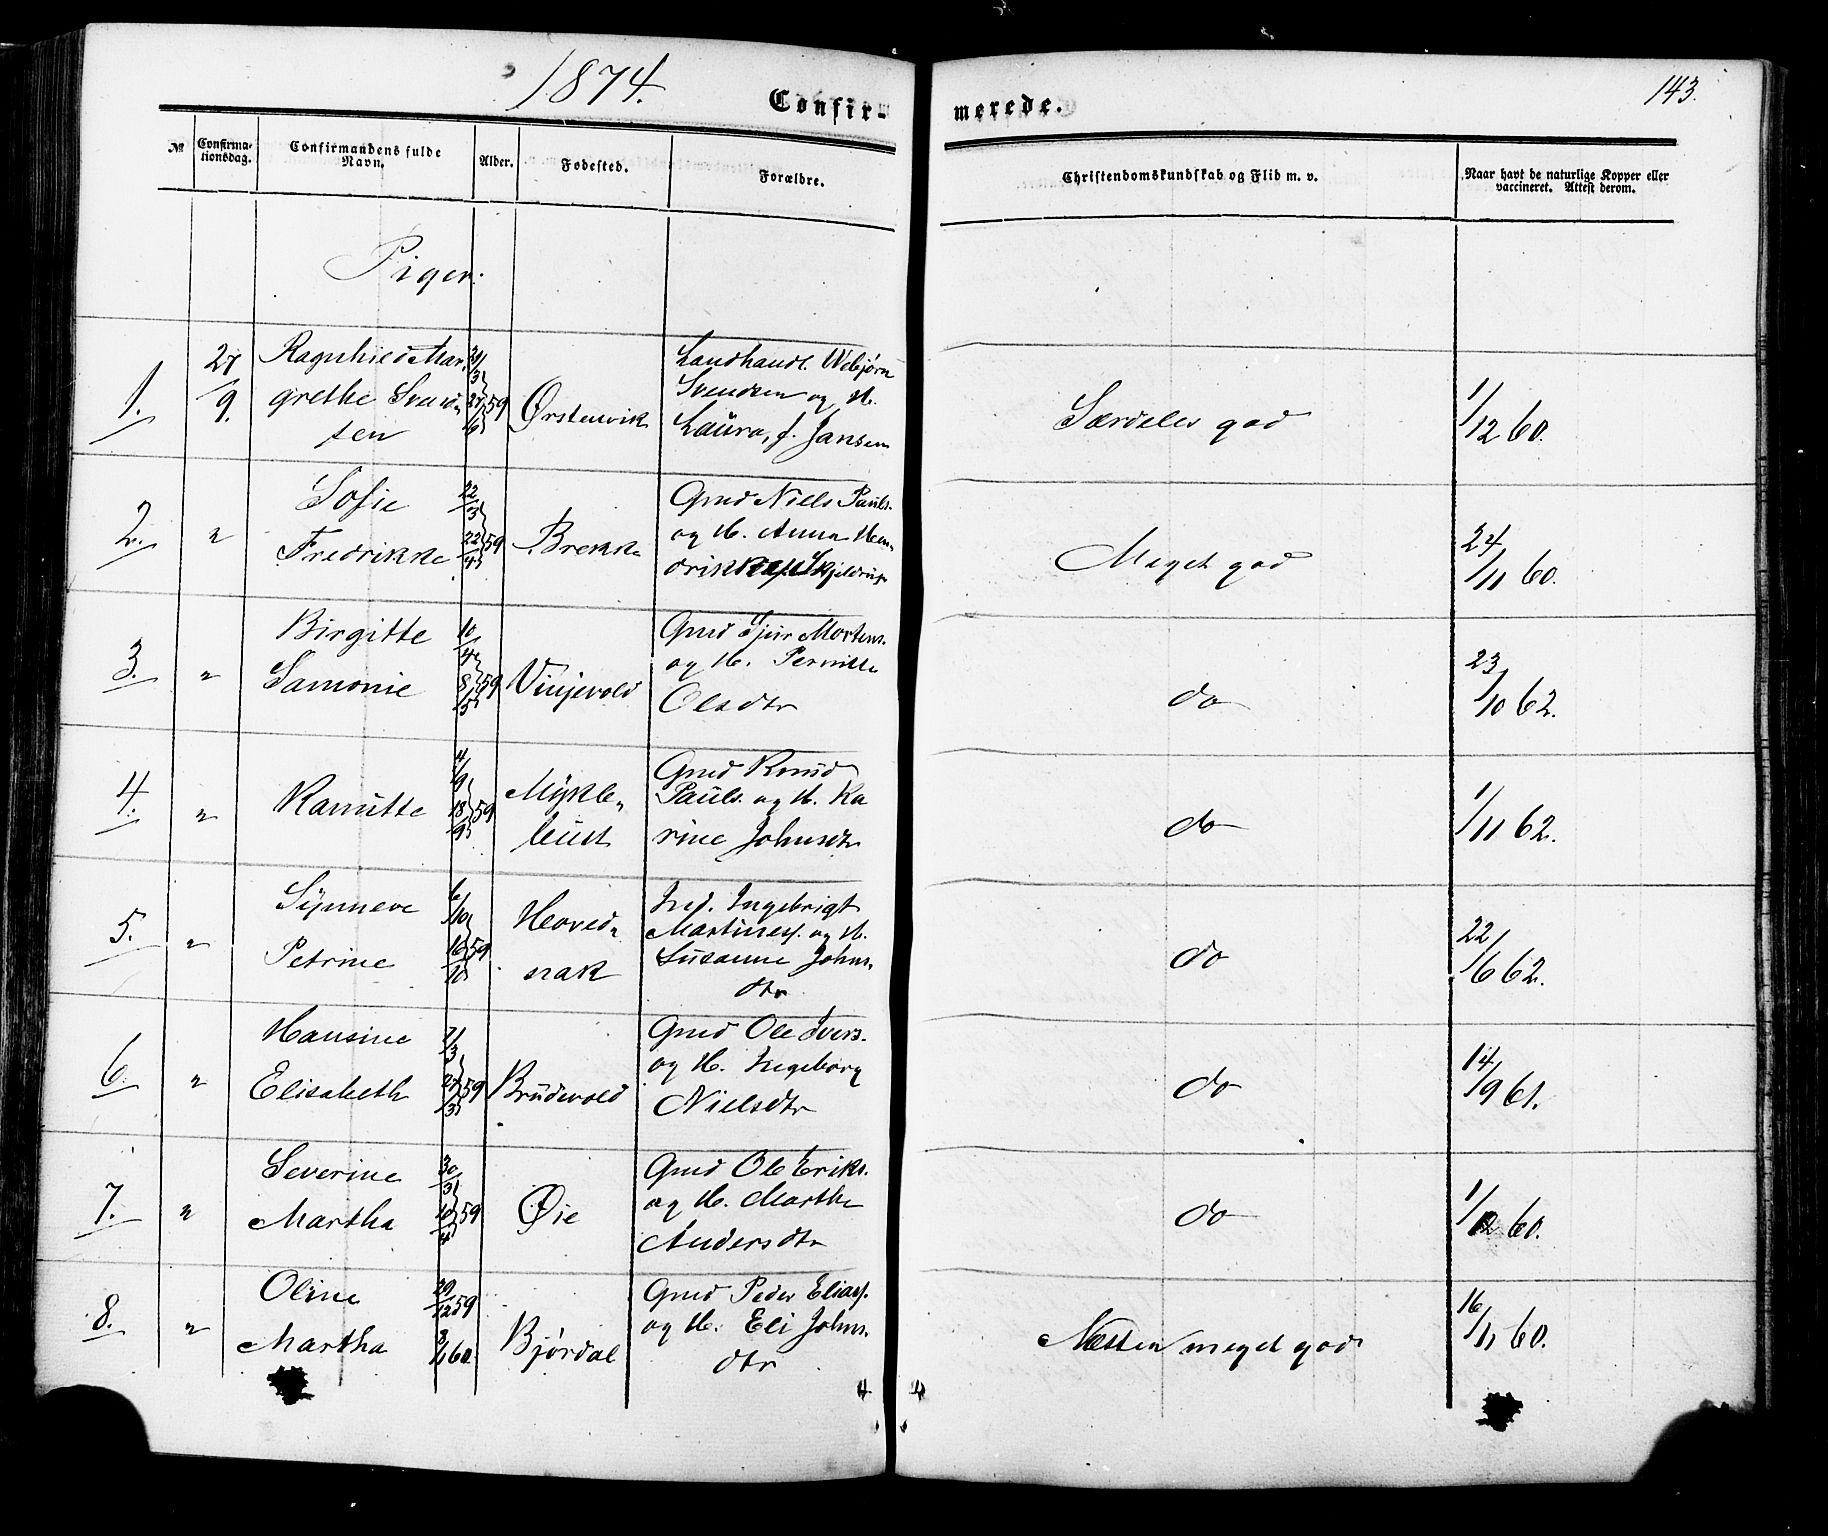 1874.
143.
Confir- merede.
№
Confirma-
tionsdag.
Confirmandens fulde
Navn.
Alder.
Fødested.
Forældre.
Christendomskundskab og Flid m. v.
Naar havt de naturlige Kopper eller
vaccineret. Attest derom.
Piger:
1. 27/9. Ragnhild Mar
grethe Svend
sen
21/3 27/6 59
Ørstenvik
Landhandl. Webjørn
Svendsen og H.
Laura, f. Jansen
Særdeles god
1/12 60.
2. " Sofie
Fredrikke
22/3 22/4 59
Brekke
Gmd Niels Pauls.
og H. Anna Hen
drikke f. Skjeldrup
Meget god
24/11 60.
3. " Birgitte
Samonie
10/4 8/5 59
Vinjevold
Gmd Sjur Mortens.
og H. Pernille
Olsdtr
do
23/10 62.
4. " Kanutte
4/9 18/9 59
Mykle-
bust
Gmd Knud
Pauls. og H. Ka
rine Johnsdtr
do
1/11 62.
5. " Synneve
Petrine
6/10 16/10 59
Hovde-
nak
Ind. Ingebrigt
Martiness. og H.
Susanne Johns.
dtr
do
22/6 62.
6. " Hansine
Elisabeth
7/3 27/3 59
Brudevold
Gmd Ole Ivers.
og H. Ingeborg
Nielsdtr
do
14/9 61.
7. " Severine
Martha
30/3 10/4 59
Øie
Gmd Ole Eriks.
og H. Marthe
Andersdtr
do
1/12 60.
8. " Oline
Martha
20/12 59
8/1 60
Bjørdal
Gmd Peder Eliass.
og H. Eli Johns.
dtr
Næsten meget god
16/11 60.